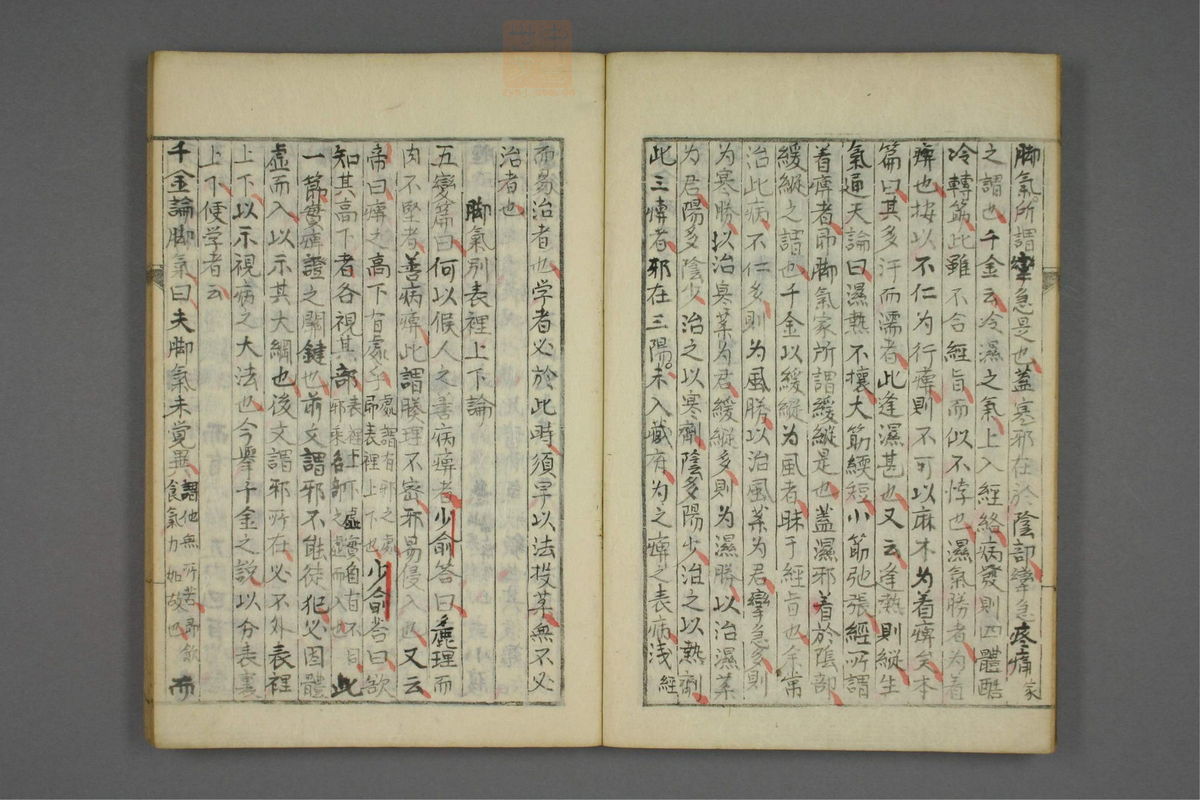 脚氣所謂攣急是也蓋寒邪在於陰部攣急疼痛家
之謂也千金云冷濕之氣上入經絡病發則四體酷
冷轉筋此雖不合經旨而似不悖也濕氣勝者為着
痺也按以不仁為行痺則不可以麻木為着痺矣本
篇曰其多汗而濡者此逢濕甚也又云逢熱則縱生
氣通天論曰濕熱不攘大筋緛短小筋弛張經所謂
着痺者即脚氣家所謂緩縱是也蓋濕邪着於陰部
緩縱之謂也千金以緩縱為風者昧于經旨也余常
治此病不仁多則為風勝以治風藥為君攣急多則
為寒勝以治寒藥為君緩縱多則為濕勝以治濕藥
為君陽多陰少治之以寒劑陰多陽少治之以熱劑
此三痺者邪在三陽未入藏府為之痺之表病淺經
而易治者也学者必於此時須早以法投藥無不必
治者也
脚氣別表裡上下論
五變篇曰何以候人之善病痺者少俞答曰麁理而
肉不堅者善病痺此謂腠理不密邪易侵入也又云
帝曰痺之高下有處乎處謂有邪之處即表裡上下也少俞答曰欲
知其高下者各視其部表裡上下虛實自有不同邪乘各部之虛而入也此
一節實痺證之關鍵也前文謂邪不能徒犯必因體
虛而入以示其大綱也後文謂邪所在必不外表裡
上下以示視病之大法也今舉千金之說以分表裏
上下便学者云
千金論脚氣曰夫脚氣未覚異謂他無所苦即飲食氣力如故也而